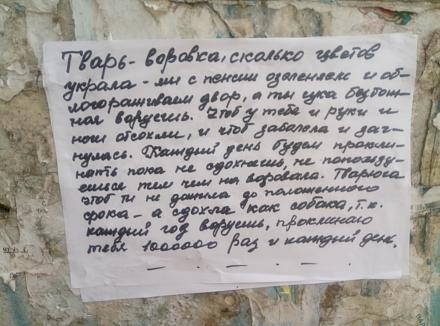 Тварь - воровка, сколько цветов
украла - мы с пенсии озеленяем и об-
лагораживаем двор, а ты сука безбож-
ная воруешь. Чтоб у тебя и руки и
ноги отсохли, и чтоб заболела и заг-
нулась. Каждый день будем прокли-
нать пока не сдохнешь, не попользу-
ешься тем чем на воровала. Тварюга
чтоб ты не дожила до положенного
срока - а сдохла как собака, т.к.
каждый год воруешь, проклинаю
тебя 1000000 раз и каждый день.